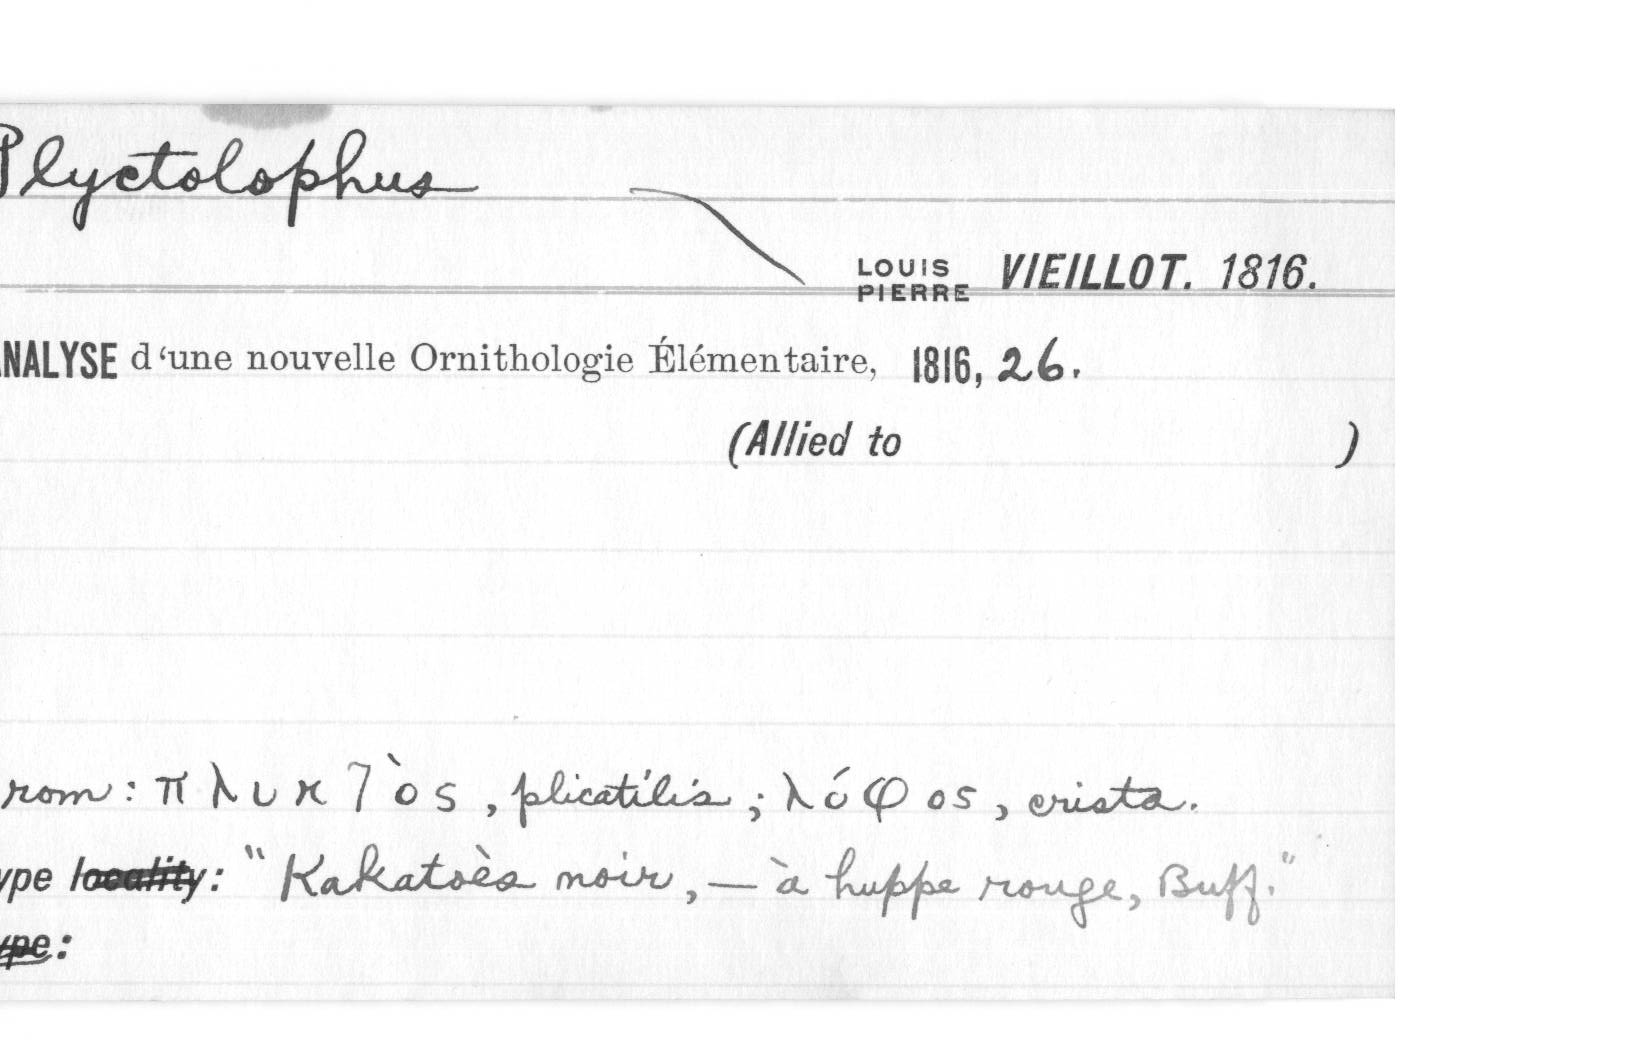 Plyctolophus
LOUIS PIERRE VIEILLOT. 1816.
NALYSE d'une nouvelle Ornithologie Élémentaire, 1816, 26.
(Allied to )
rom: πλυκτὸς, plicatilis; λόφος, crista.
ype locality: "Kakatoès noir, — à huppe rouge, Buff."
ype: